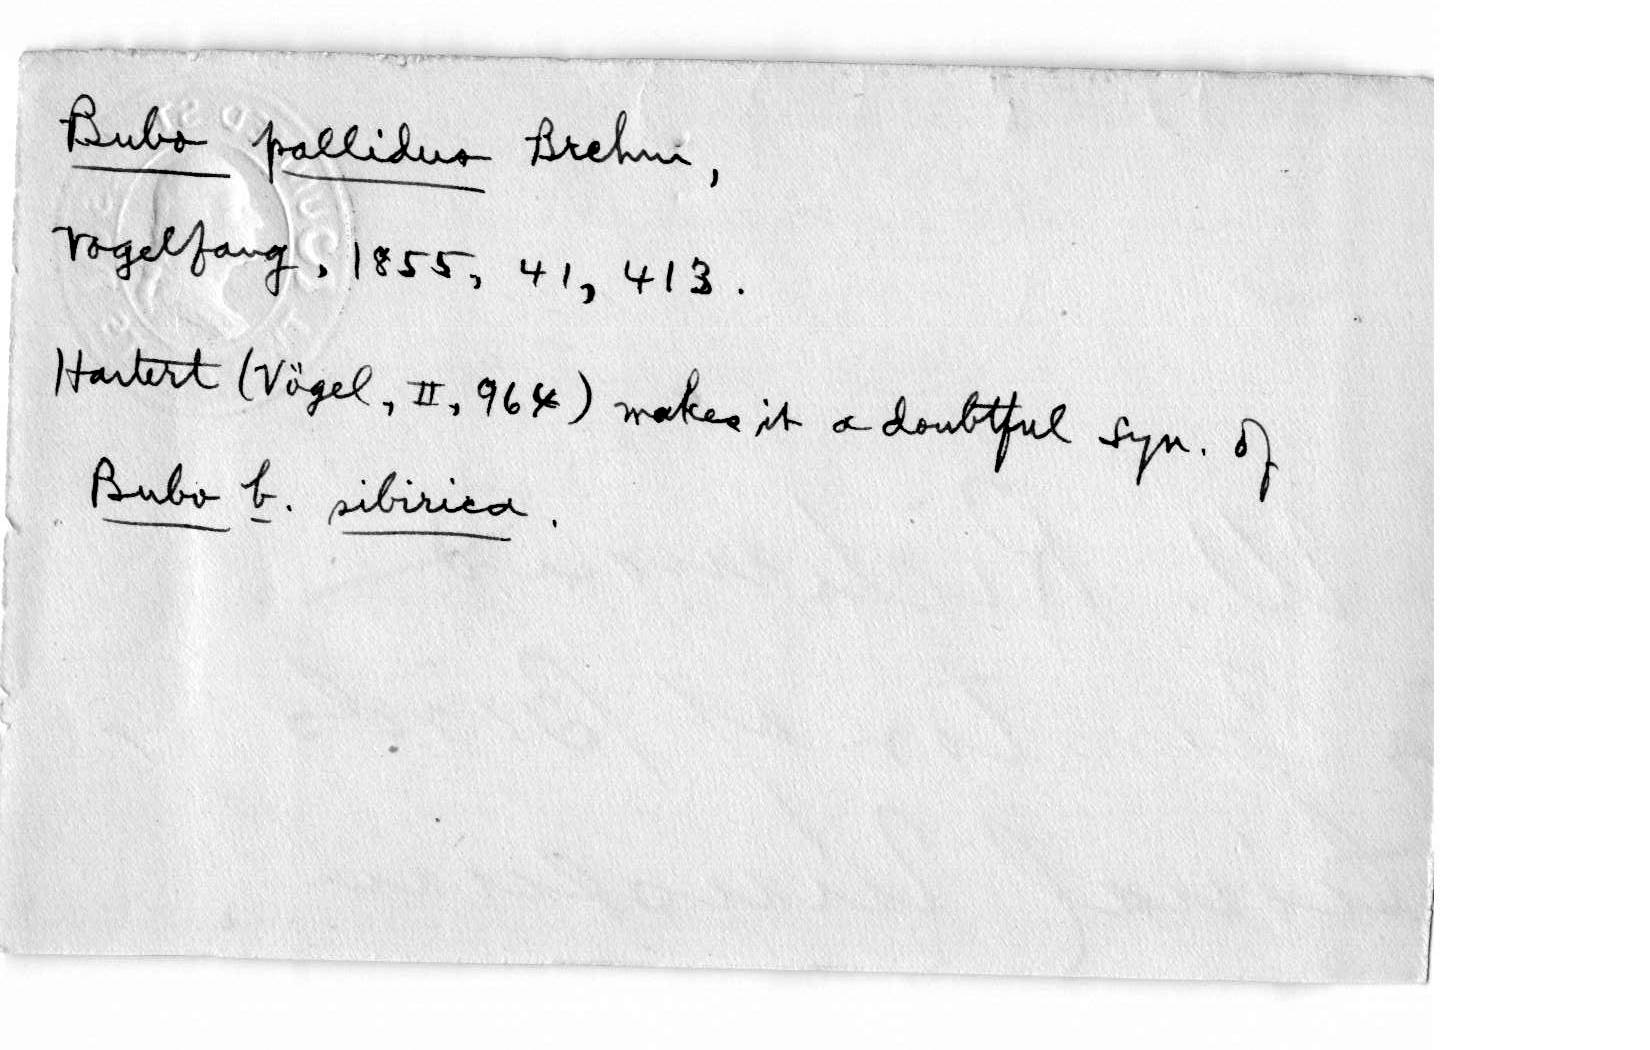 Bubo pallidus Brehm,
Vogelfang, 1855, 41, 413.
Hartert (Vögel, II, 964) makes it a doubtful syn. of
Bubo b. sibirica.